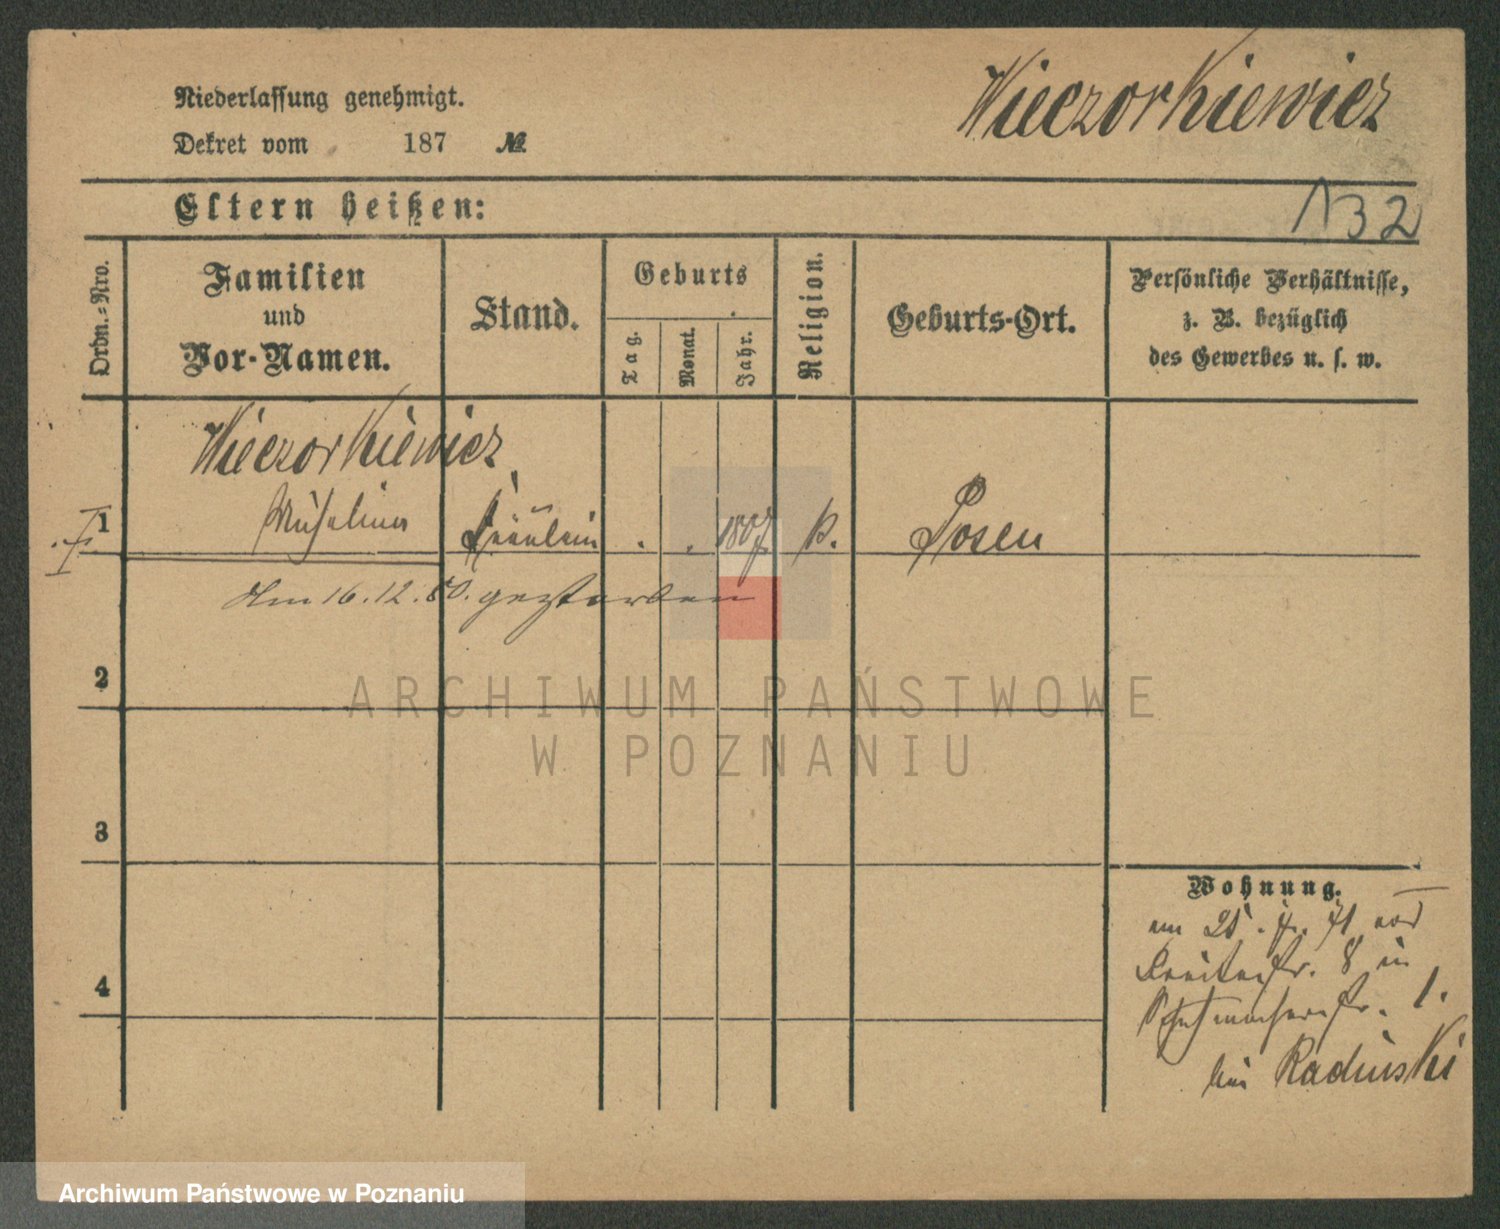 Wieczorkiewicz
Niederlassung genehmigt.
Dekret vom 187 №
Eltern heißen:
132
Ordn.-Nro.
Familien
und
Vor-Namen.
Stand.
Geburts
Tag.
Monat.
Jahr.
Religion.
Geburts-Ort.
Persönliche Verhältnisse,
z. B. bezüglich
des Gewerbes u. s. w.
Wieczorkiewicz
1
Fräulein . . 1807 k. Posen
Am 16.12.80. gestorben
2
ARCHIWUM PAŃSTWOWE
W POZNANIU
3
Wohnung.
am 25. 71 von
Breitestr. 8 in
4
Schuhmacherstr. 1.
bei Radinski
Archiwum Państwowe w Poznaniu